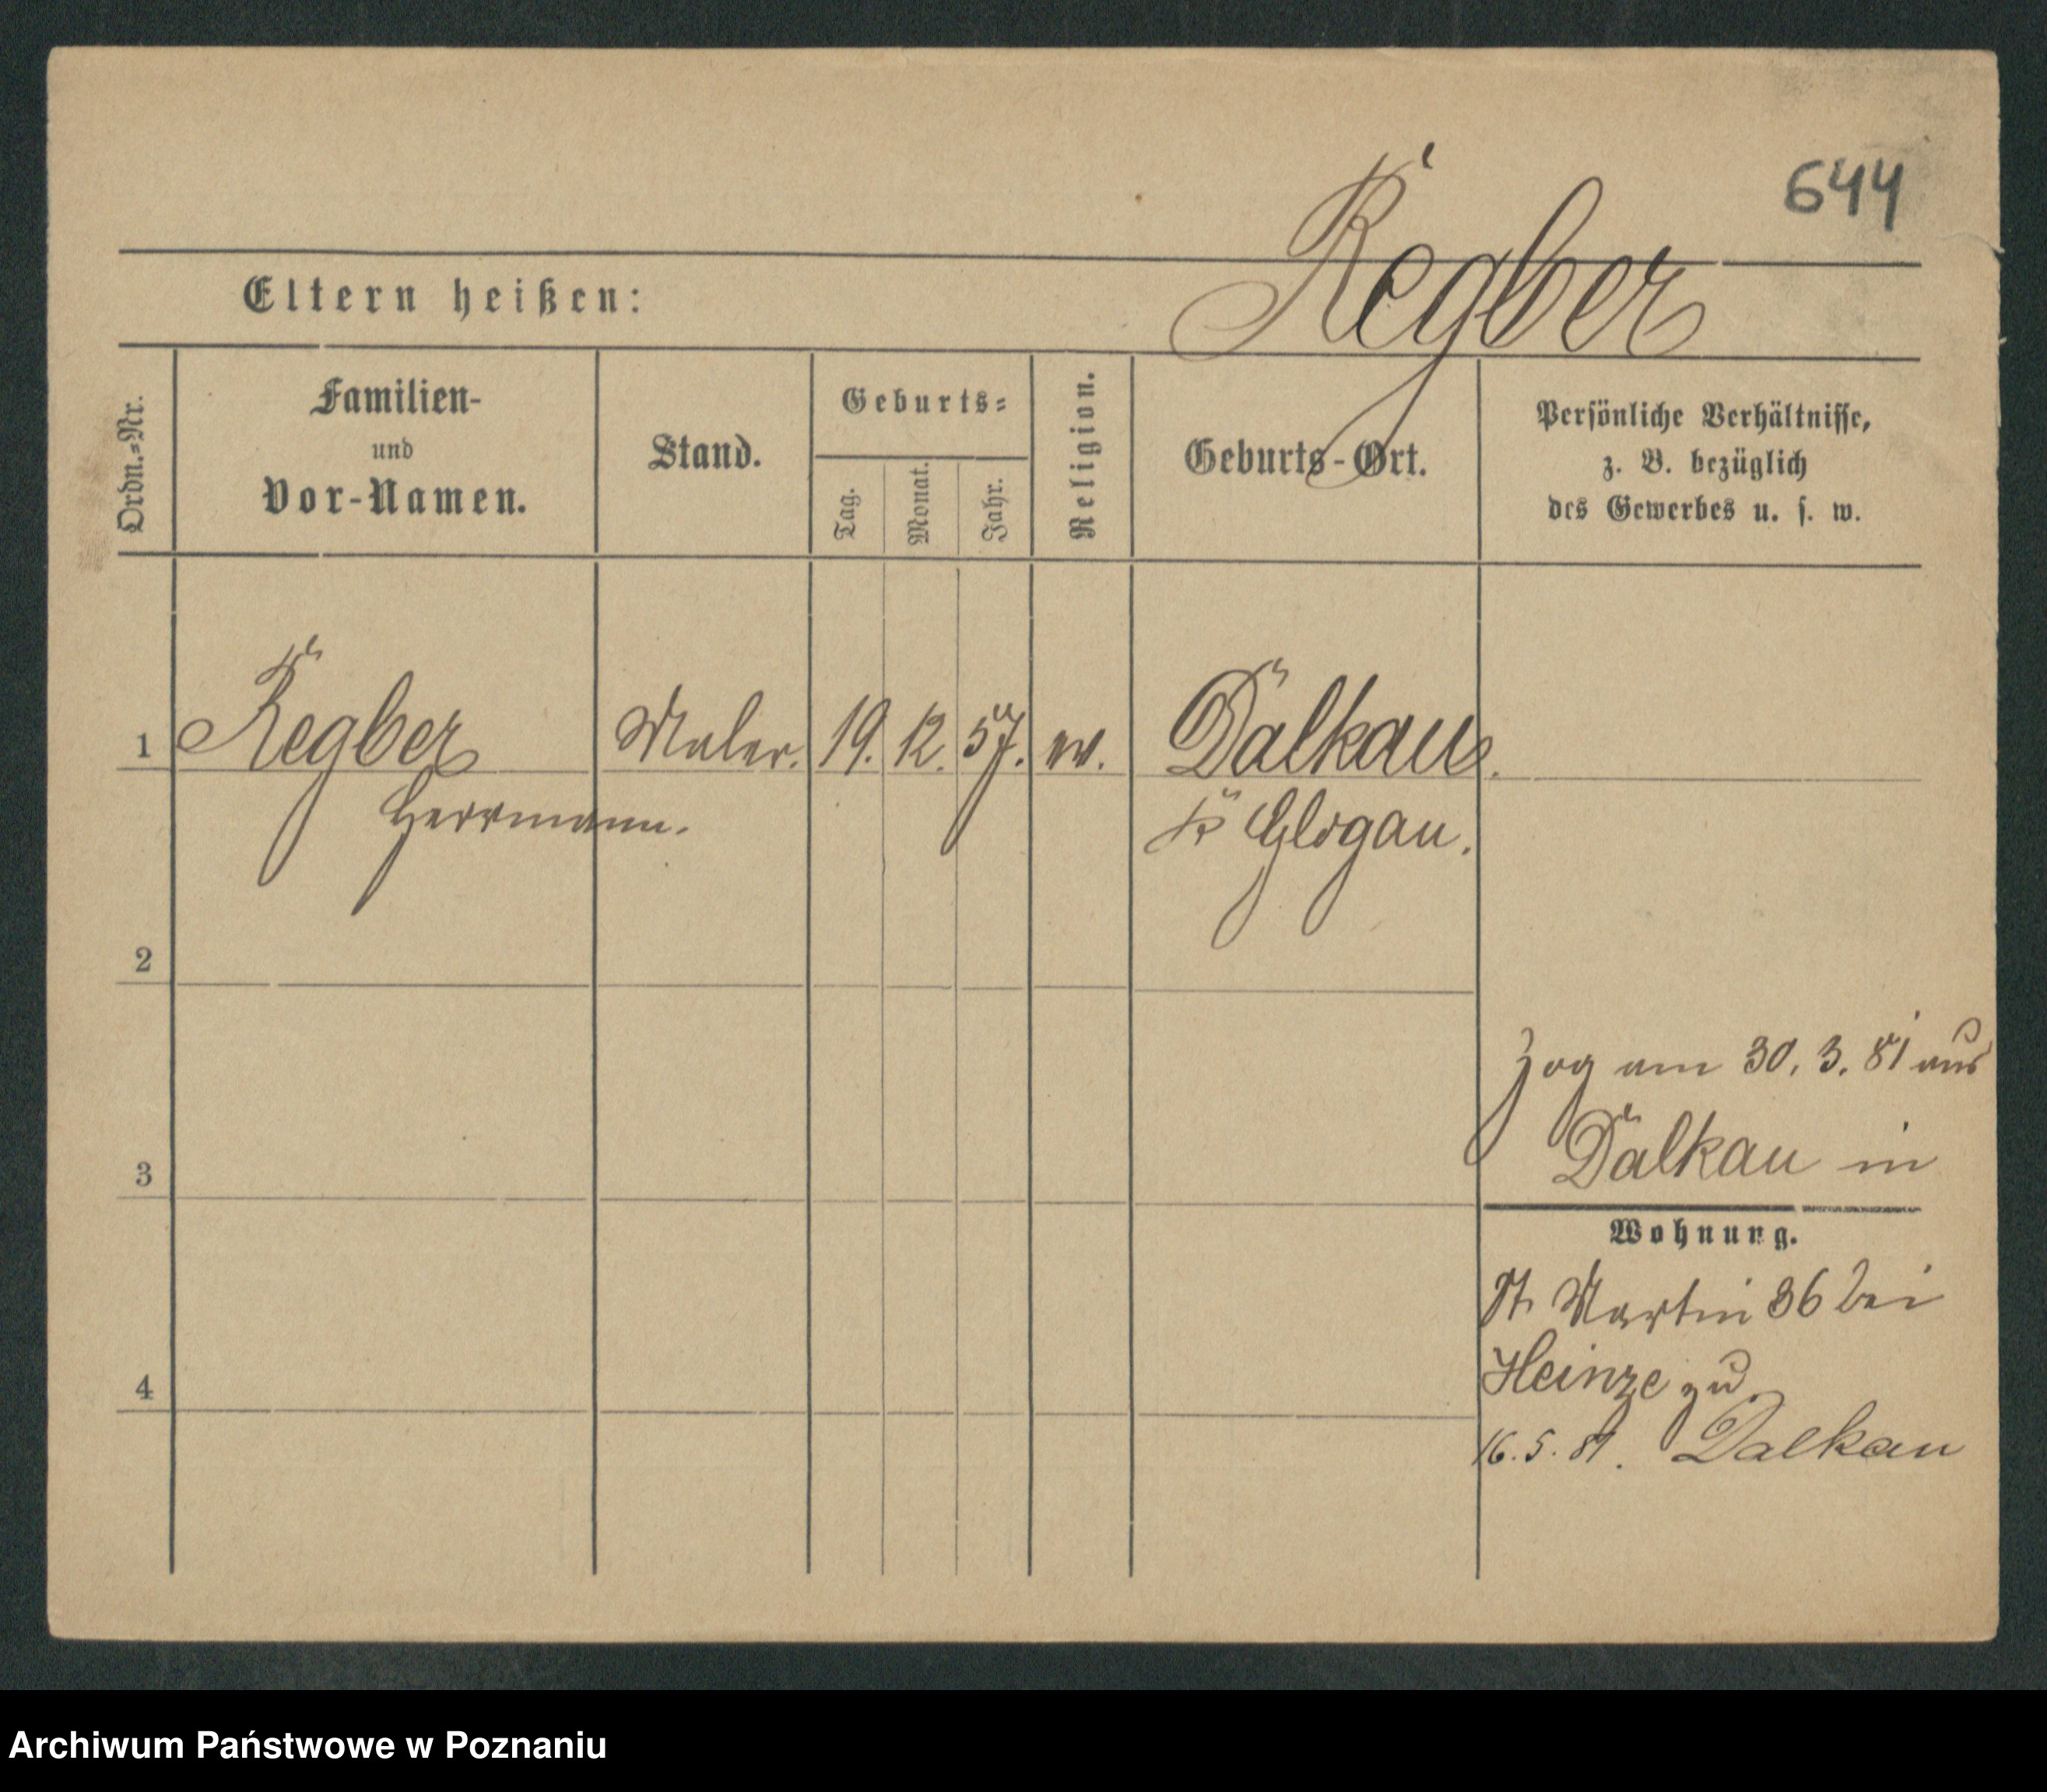 644
Regber
Eltern heißen:
Ordn.=Nr.
Familien-
und
Vor-Namen.
Stand.
Geburts=
Tag.
Monat.
Jahr.
Religion.
Geburts-Ort.
Persönliche Verhältnisse,
z. B. bezüglich
des Gewerbes u. s. w.
1 Regber Maler. 19. 12. 57. ev. Dalkau.
Herrmann. Kr Glogau.
2
zog am 30. 3. 81 aus
Dalkau in
3
Wohnung.
St. Martin 36 bei
Heinze zu
4
16. 5. 81. Dalkau
Archiwum Państwowe w Poznaniu